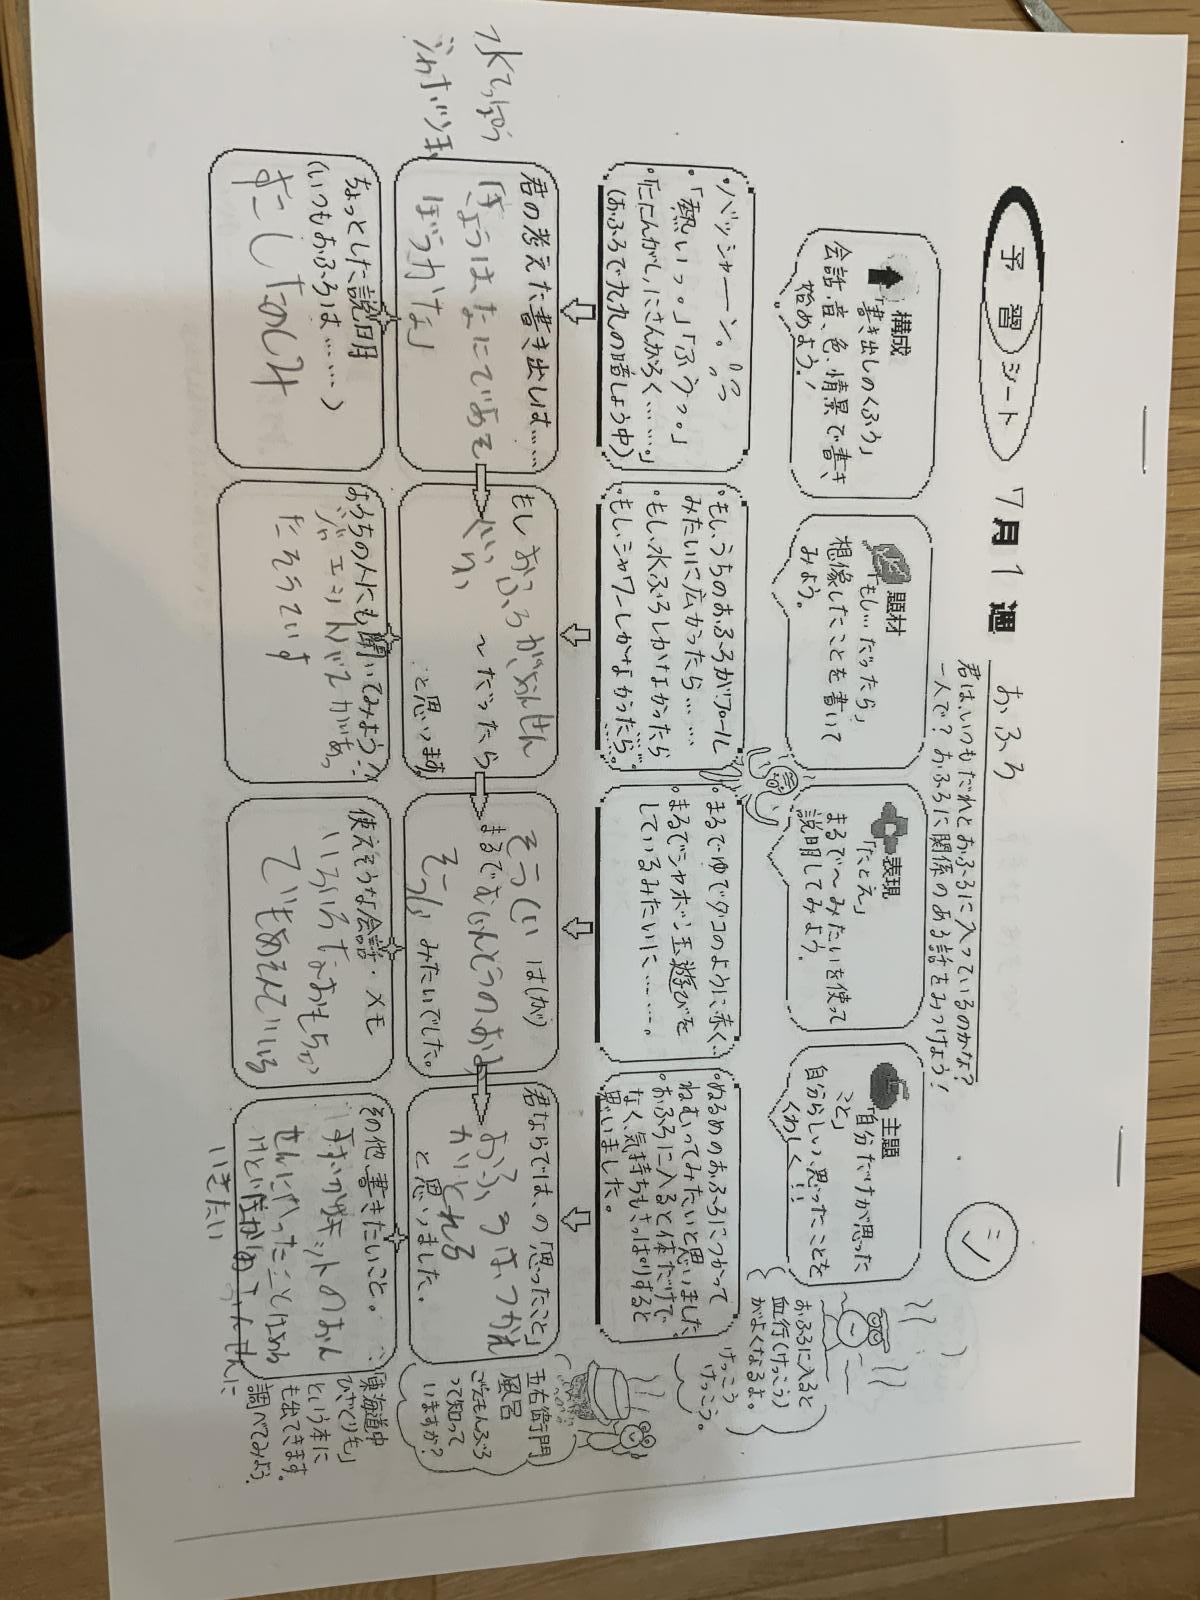 予習シート 7月1週 おふろ
君は、いつもだれとおふろに入っているのかな?
一人で? おふろに関係のある話をみつけよう!
シ
構成
「書き出しのくふう」
会話、音、色、情景で書き
始めよう!
題材
「もし…だったら」
想像したことを書いて
みよう。
表現
「たとえ」
まるで〜みたいを使って
説明してみよう。
主題
「自分だけが思った
こと」
自分らしい、思ったことを
くわしく!!
おふろに入ると
血行(けっこう)
がよくなるよ。
けっこう
けっこう。
・バッシャーン。
・「熱いっ。」「ふうっ。」
・「ににんがし、にさんがろく……」
(おふろで九九の暗しょう中)
・もし、うちのおふろがプール
みたいに広かったら……
・もし、水ぶろしかなかったら
・もし、シャワーしかなかったら…
・まるでゆでダコのように赤く…
・まるでシャボン玉遊びを
しているみたいに……。
・ぬるめのおふろにつかって
ねむってみたいと思いました。
・おふろに入ると体だけで
なく、気持ちもさっぱりすると
思いました。
君の考えた書き出しは……
「きょうはなにであそ
ぼうかな」
水でっぽう
シャボン玉
もしおふろがおんせん
〜だったら
いい
と思います。
まるで
みたいでした。
君ならではの「思ったこと」
おふろはつかれ
がとれる
と思いました。
五右衛門
風呂
ごえもんぶろ
って知って
いますか?
ちょっとした説明
(いつもおふろは……)
すこしたのしみ
おうちの人にも聞いてみよう!!
使えそうな会話・メモ
いろいろなおもちゃ
その他、書きたいこと。
いきたい
「東海道中
ひざくり毛」
という本に
も出てきます。
調べてみよう。